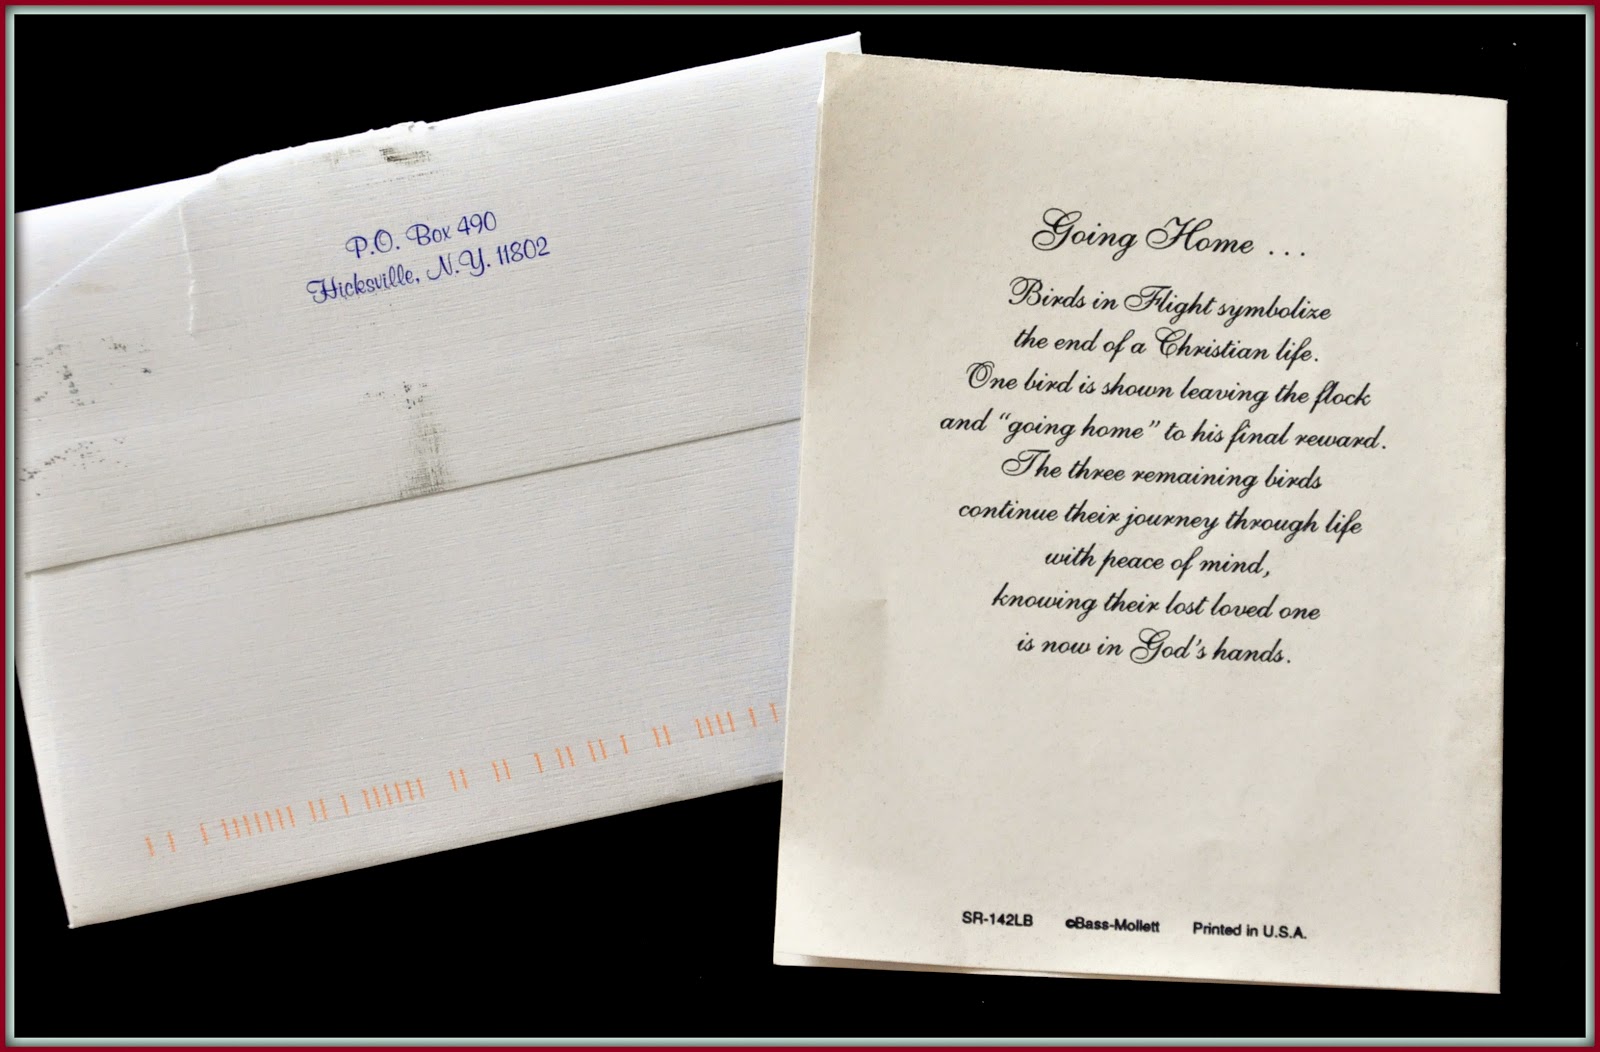 P.O. Box 490
Hicksville, N.Y. 11802
Going Home ...
Birds in Flight symbolize
the end of a Christian life.
One bird is shown leaving the flock
and "going home" to his final reward.
The three remaining birds
continue their journey through life
with peace of mind,
knowing their lost loved one
is now in God's hands.
SR-142LB ©Bass-Mollett Printed in U.S.A.